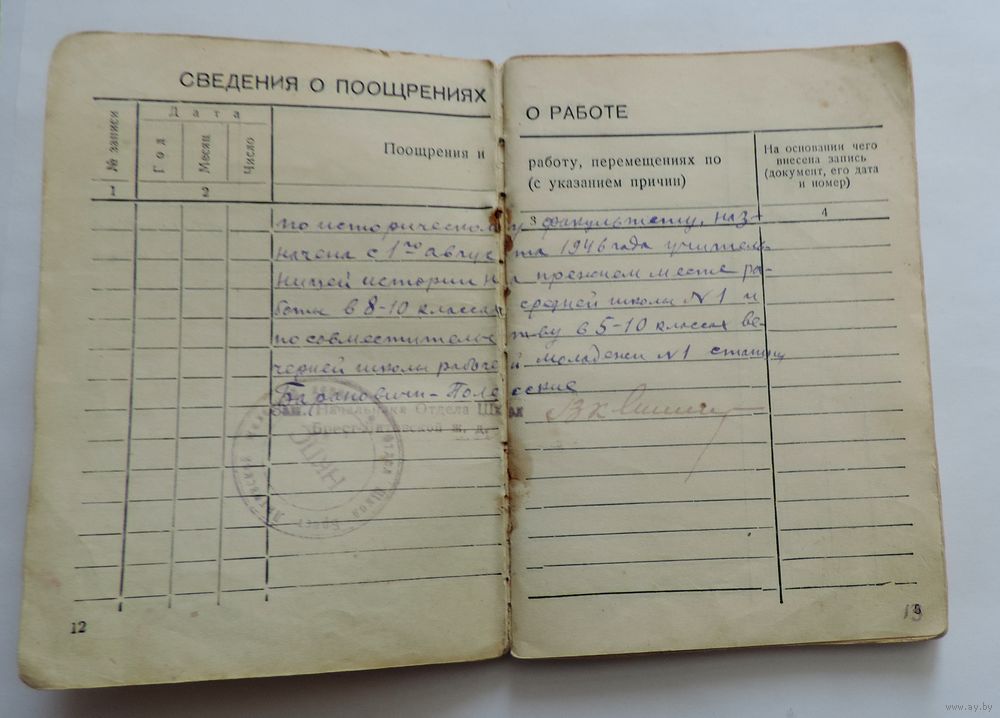 СВЕДЕНИЯ О ПООЩРЕНИЯХ
О РАБОТЕ
№ записи
Дата
Год
Месяц
Число
Поощрения и
работу, перемещениях по
(с указанием причин)
На основании чего
внесена запись
(документ, его дата
и номер)
1
2
3
4
по историческому факультету, наз-
начена с 1го августа 1946 года учитель
ницей истории на прежнем месте ра-
боты в 8-10 классах средней школы №1 и
по совместительству в 5-10 классах ве-
черней школы рабочей молодежи №1 станции
Барановичи-Полесские
Зам. Начальника Отдела Школ
Брест-Литовской ж. д.
НКПС
12
13
www.ay.by